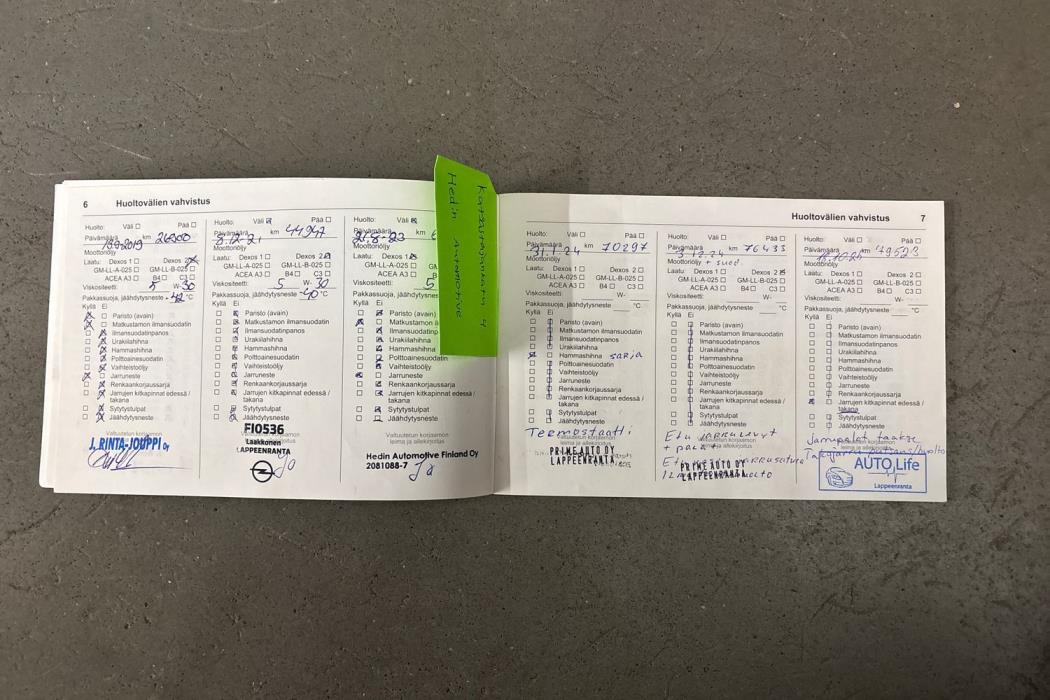 6 Huoltovälien vahvistus
Huolto: Väli Pää
Päivämäärä 18.9.2019 km 26300
Moottoriöljy
Laatu: Dexos 1 Dexos 2
GM-LL-A-025 GM-LL-B-025
ACEA A3 B4 C3
Viskositeetti 5 W-30
Pakkassuoja, jäähdytysneste -42 °C
Kyllä Ei
Paristo (avain)
Matkustamon ilmansuodatin
Ilmansuodatinpanos
Urakiilahihna
Hammashihna
Polttoainesuodatin
Vaihteistoöljy
Jarruneste
Renkaankorjaussarja
Jarrujen kitkapinnat edessä /
takana
Sytytystulpat
Jäähdytysneste
J. RINTA-JOUPPI Oy
Huolto: Väli Pää
Päivämäärä 8.12.21 km 44947
Moottoriöljy
Laatu: Dexos 1 Dexos 2
GM-LL-A-025 GM-LL-B-025
ACEA A3 B4 C3
Viskositeetti 5 W-30
Pakkassuoja, jäähdytysneste -40 °C
Kyllä Ei
Paristo (avain)
Matkustamon ilmansuodatin
Ilmansuodatinpanos
Urakiilahihna
Hammashihna
Polttoainesuodatin
Vaihteistoöljy
Jarruneste
Renkaankorjaussarja
Jarrujen kitkapinnat edessä /
takana
Sytytystulpat
Jäähdytysneste
FI0536
Laakkonen
LAPPEENRANTA
Huolto: Väli
Päivämäärä 21.8.23 km
Moottoriöljy
Laatu: Dexos 1
GM-LL-A-025
ACEA A3
Viskositeetti 5
Pakkassuoja, jäähdytysneste
Kyllä Ei
Paristo (avain)
Matkustamon
Ilmansuodatinpanos
Urakiilahihna
Hammashihna
Polttoainesuodatin
Vaihteistoöljy
Jarruneste
Renkaankorjaussarja
Jarrujen kitkapinnat edessä /
takana
Sytytystulpat
Jäähdytysneste
Hedin Automotive Finland Oy
2081088-7
Hedin Automotive
Huoltovälien vahvistus 7
Huolto: Väli Pää
Päivämäärä 31.1.24 km 70297
Moottoriöljy
Laatu: Dexos 1 Dexos 2
GM-LL-A-025 GM-LL-B-025
ACEA A3 B4 C3
Viskositeetti W-
Pakkassuoja, jäähdytysneste °C
Kyllä Ei
Paristo (avain)
Matkustamon ilmansuodatin
Ilmansuodatinpanos
Urakiilahihna
Hammashihna sarja
Polttoainesuodatin
Vaihteistoöljy
Jarruneste
Renkaankorjaussarja
Jarrujen kitkapinnat edessä /
takana
Sytytystulpat
Jäähdytysneste
Termostaatti
PRIME AUTO OY
LAPPEENRANTA
Huolto: Väli Pää
Päivämäärä 3.12.24 km 76433
Moottoriöljy + suod.
Laatu: Dexos 1 Dexos 2
GM-LL-A-025 GM-LL-B-025
ACEA A3 B4 C3
Viskositeetti W-
Pakkassuoja, jäähdytysneste °C
Kyllä Ei
Paristo (avain)
Matkustamon ilmansuodatin
Ilmansuodatinpanos
Urakiilahihna
Hammashihna
Polttoainesuodatin
Vaihteistoöljy
Jarruneste
Renkaankorjaussarja
Jarrujen kitkapinnat edessä /
takana
Sytytystulpat
Jäähdytysneste
Etu jarrulevyt
+ palat
PRIME AUTO OY
LAPPEENRANTA
Huolto: Väli Pää
Päivämäärä km 79523
Moottoriöljy
Laatu: Dexos 1 Dexos 2
GM-LL-A-025 GM-LL-B-025
ACEA A3 B4 C3
Viskositeetti W-
Pakkassuoja, jäähdytysneste °C
Kyllä Ei
Paristo (avain)
Matkustamon ilmansuodatin
Ilmansuodatinpanos
Urakiilahihna
Hammashihna
Polttoainesuodatin
Vaihteistoöljy
Jarruneste
Renkaankorjaussarja
Jarrujen kitkapinnat edessä /
takana
Sytytystulpat
Jäähdytysneste
Jarrupalat taakse
AUTO Life
Lappeenranta